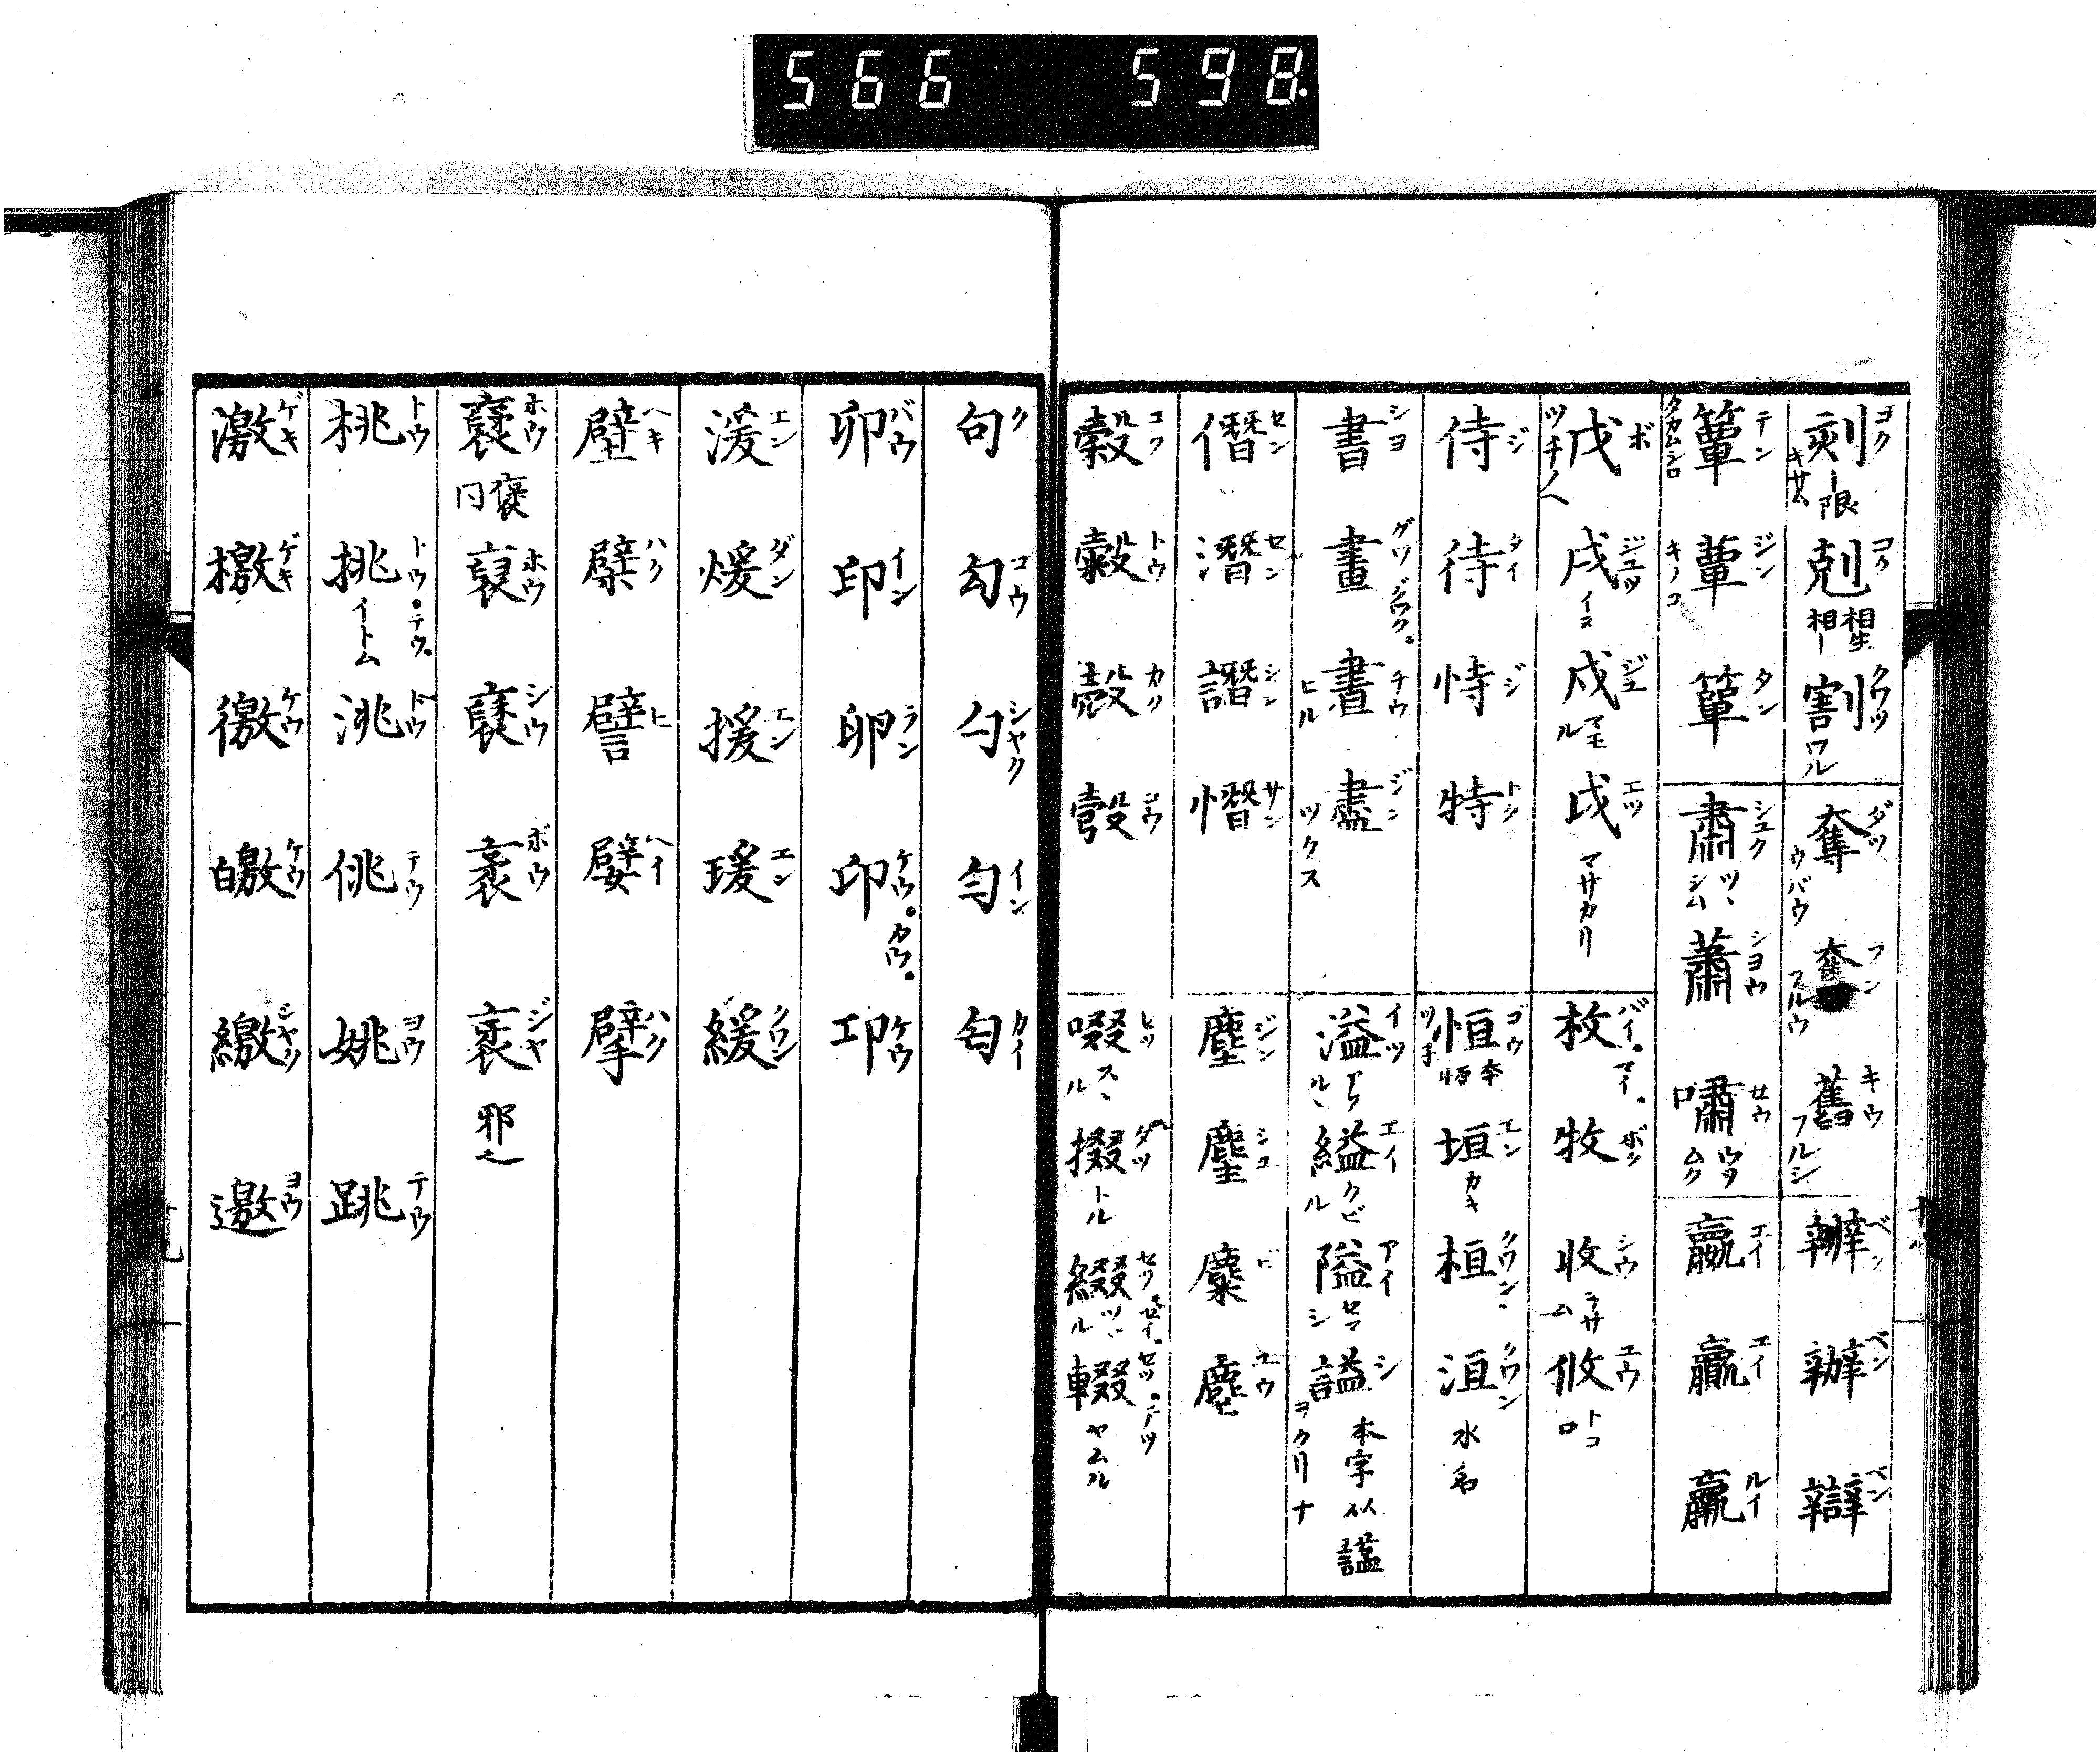 566 598.
刻コク キサム ー限 剋コク 相生相ー 割クワツ ワル 奪ダツ ウバウ 奮フン フルウ 舊キウ フルシ 辨ベン 辦ベン 辯ベン
簟テン タカムシロ 蕈ジン キノコ 簞タン 肅シユク ツヽシム 蕭シヨウ 嘯せウ ウソムク 嬴エイ 贏エイ 羸ルイ
戊ボ ツチノヘ 戌ジユツ イヌ 戍ジユ マモル 戉エツ マサカリ 枚バイ・マイ。 牧ボク 收シウ ヲサム 攸ユウ トコロ
侍ジ 待タイ 恃ジ 特トク 恒ゴウ ツ子 垣エン カキ 桓クワン 洹クワン 水名
書シヨ 畫グワ ジワク。 晝チウ ヒル 盡ジン ツクス 溢イツ アフルヽ 縊エイ クビル 隘アイ セマシ 謚シ ヲクリナ 本字以諡
僭セン 潛セン 譖シン 憯サン 塵ジン 麈シユ 麋ビ 麀ユウ
穀コク 㲄トウ 殼カク 彀コウ 啜セツ スヽル 掇タツ トル 綴セツ。せイ。 ツヾル 輟セツ。テツ ヤムル
句ク 勾コウ 勺シヤク 勻イン 匄カイ
卯バウ 印イン 卵ラン 卬ケウ。カウ。 邛ケウ
湲エン 煖ダン 援エン 瑗エン 緩クワン
壁ヘキ 檗ハク 譬ヒ 嬖ヘイ 擘ハク
襃ホウ 同褒 裒ホウ 褎シウ 袤ボウ 衺ジヤ 邪之
桃トウ 挑トウ。テウ。 イトム 洮トウ 佻テウ 姚ヨウ 跳テウ
激ゲキ 檄ゲキ 徼ケウ 皦ケウ 繳シヤク 邀ヨウ